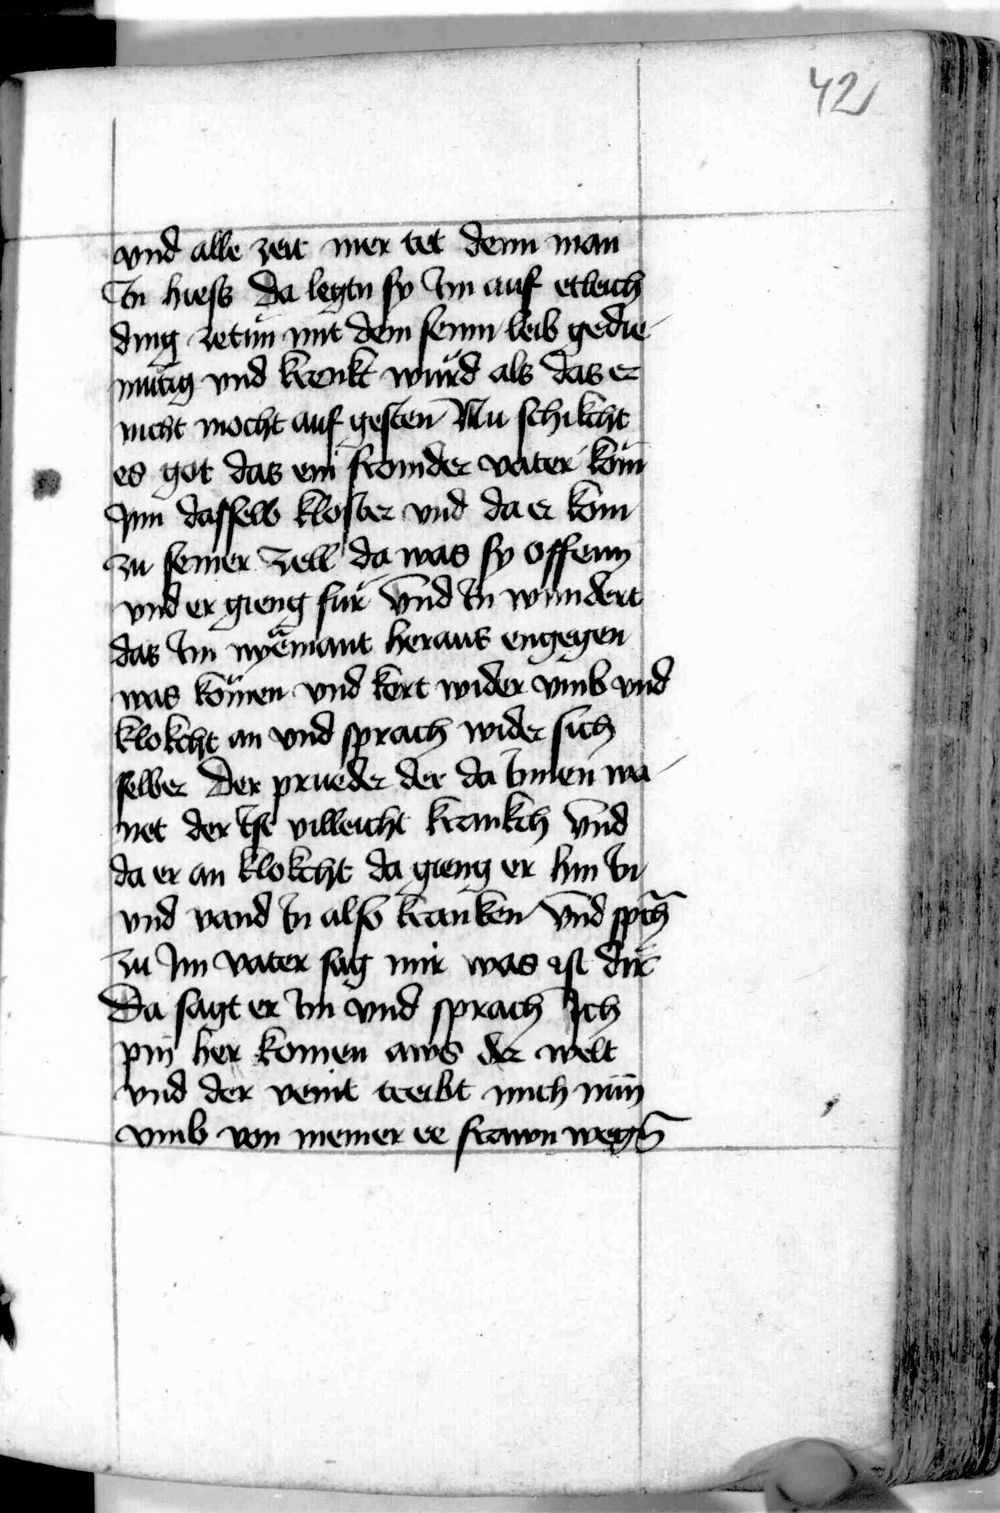 42
vnd alle zeit mer tet denn man
In hiess da legtn sy Im auf etleich
ding zetůn mit dem seinn leib gedie
mütig vnd krenkt würd als das er
nicht mocht auf gesten Nu schikcht
es got das ein fromder vater kom
Inn dasselb kloster vnd da er kom
zu seiner zell da was sy offenn
vnd er gieng für vnd In wundert
das Im nyemant heraus engegen
was komen vnd kert wider vmb vnd
klokcht an vnd sprach wider sich
selber Der prueder der da Innen wa
net der Ist villeicht krankch vnd
da er an klokcht da gieng er hin In
vnd vand In also kranken vnd spch
zu Im vater sag mir was ist dir
Da sagt er Im vnd sprach Ich
pin her komen aws der welt
vnd der veint treibt mich nün
vmb von meiner ee frawn wegn